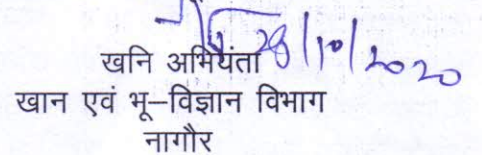 28/10/2020
खनि अभियंता
खान एवं भू–विज्ञान विभाग
नागौर